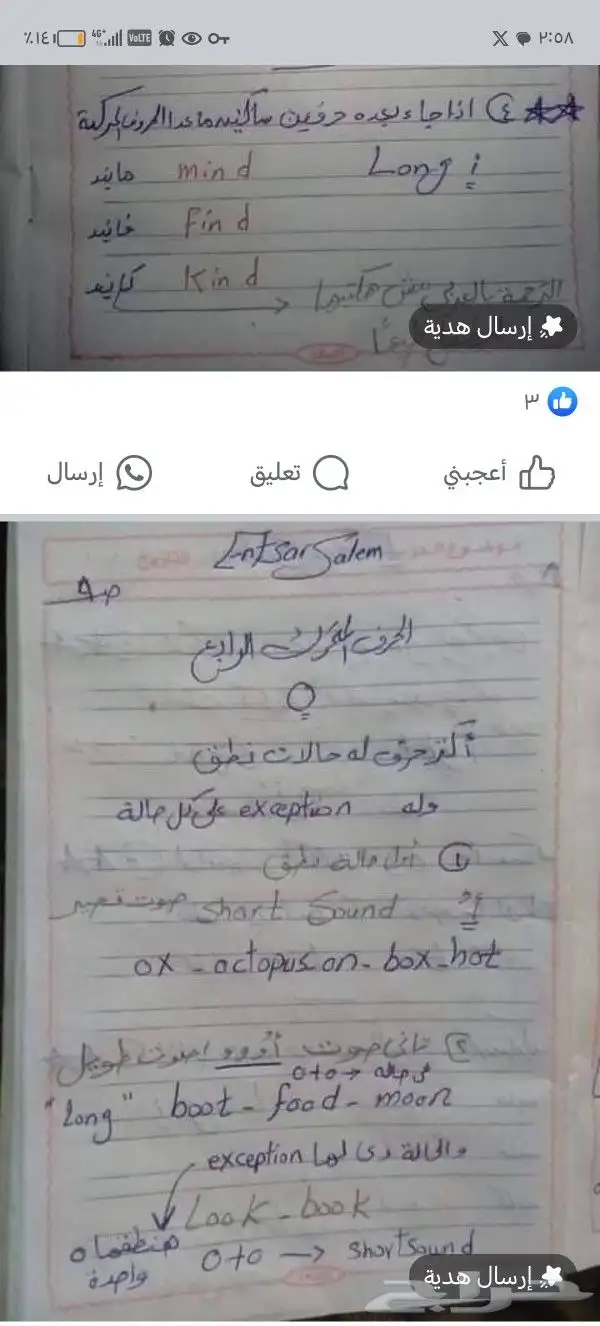 ٪١٤ 4G VoLTE X ٢:٥٨
٤ اذا جاء بعده حرفين ساكنين ماعدا الحروف المركبة
Long i
mind مايند
Find فايند
Kind كايند
الترجمة بالعربي مش هكتبها
إرسال هدية
٣
أعجبني تعليق إرسال
Entsar Salem
ص ٨
الحرف المتحرك الرابع
O
أكتر حرف له حالات نطق
وله exception على كل حالة
١ أول حالة نطق
أو short Sound صوت قصير
ox - octopus on - box - hot
٢ تاني صوت أووو (صوت طويل
في حالة o+o →
"Long" boot - food - moon
والحالة دي لها exception
Look - book
هننطقها o واحدة
o+o → short sound
إرسال هدية
حراج